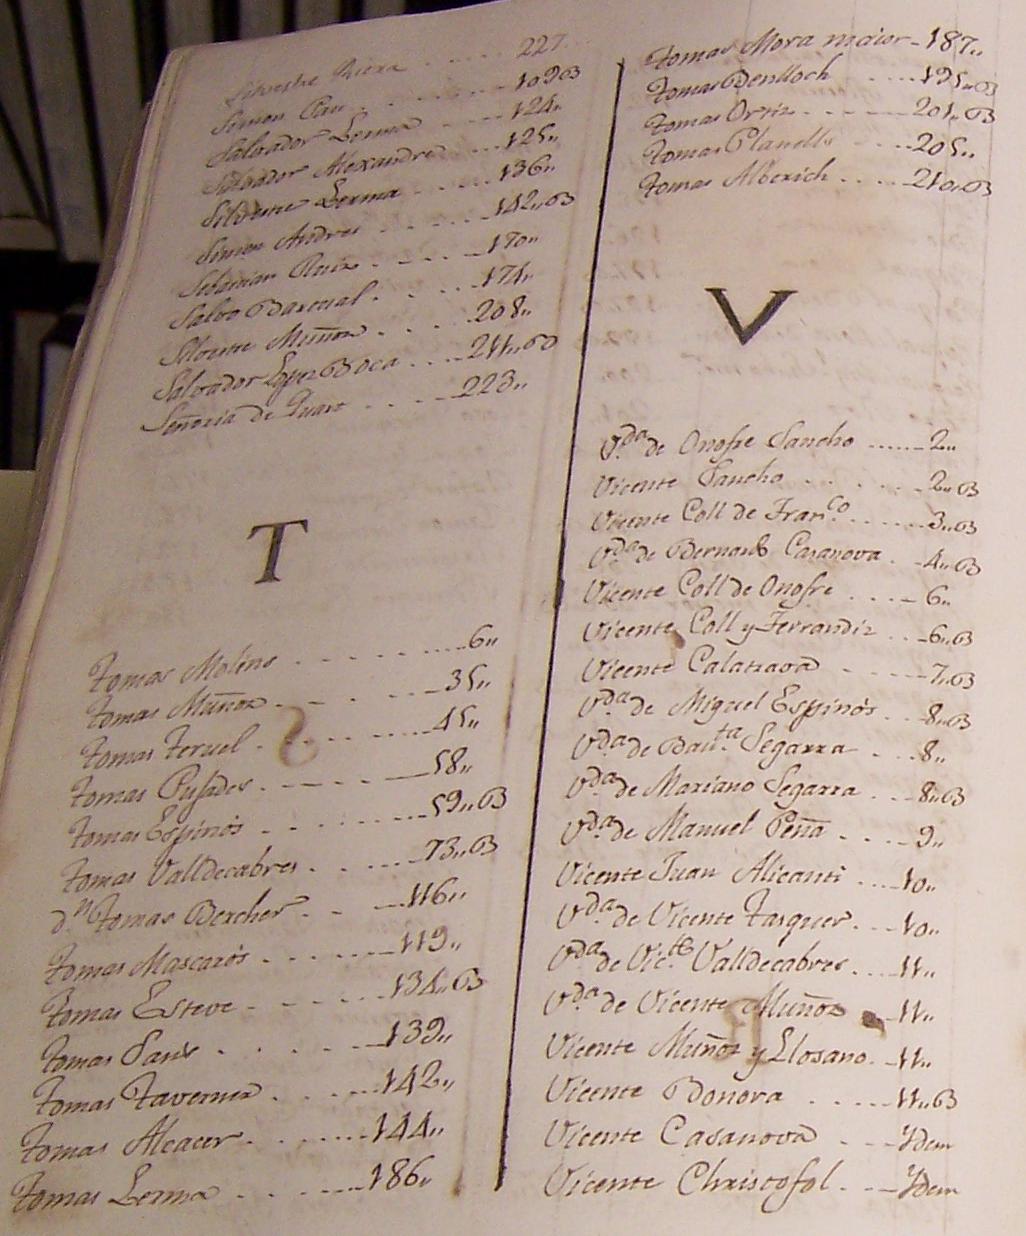 Silvestre Riera . . . . . 227
Simon Pau . . . . . . . 109 B
Salvador Lerma . . . . 124,,
Salvador Alexandre . . . 125,,
Silvestre Lerma . . . . 136,,
Simon Andres . . . . . 142,, B
Sebastian Ruiz . . . . . 170,,
Salvo Pascual . . . . . 174,,
Silvestre Muñoz . . . . 208,,
Salvador Lopez Boca . . . 211,, B
Señoria de Quart . . . . 223,,
T
Tomas Molins . . . . . . 6,,
Tomas Muñoz . . . . . . 35,,
Tomas Teruel . . . . . . 45,,
Tomas Pujades . . . . . 58,,
Tomas Espinós . . . . . 59,, B
Tomas Valldecabres . . . . 73,, B
dⁿ Tomas Bercher . . . 116,,
Tomas Mascarós . . . . . 119,,
Tomas Esteve . . . . . . 134,, B
Tomas Sanz . . . . . . 139,,
Tomas Taverner . . . . . 142,,
Tomas Alcacer . . . . . 144,,
Tomas Lerma . . . . . . 186,,
Tomas Mora maior . 187,,
Tomas Benlloch . . . . 195,, B
Tomas Ortiz . . . . . . 201,, B
Tomas Planells . . . . 205,,
Tomas Alberich . . . . 210,, B
V
V.da de Onofre Sancho . . . . . 2,,
Vicente Sancho . . . . . . 2,, B
Vicente Coll de Fran.co . . . . . 3,, B
V.da de Bernardo Casanova . . 4,, B
Vicente Coll de Onofre . . . . 6,,
Vicente Coll y Ferrandiz . . . 6,, B
Vicente Calatrava . . . . . 7,, B
V.da de Miguel Espinós . . . 8,, B
V.da de Bau.ta Segarra . . . 8,,
V.da de Mariano Segarra . . . 8,, B
V.da de Manuel Peña . . . . 9,,
Vicente Juan Alicanti . . . . 10,,
V.da de Vicente Tasquer . . . 10,,
V.da de Vic.te Valldecabres . . . . 11,,
V.da de Vicente Muñoz . . 11,,
Vicente Muñoz y Llosano . . 11,,
Vicente Bonora . . . . . 11,, B
Vicente Casanova . . . . Ydem
Vicente Christofol . . . Ydem